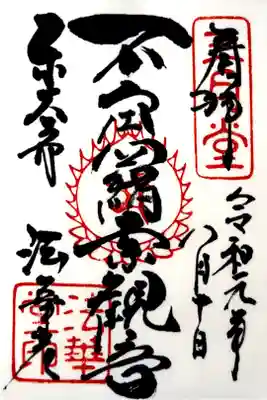 奉拝
三月堂
令和元年
八月十日
不空羂索観音
東大寺
法華堂